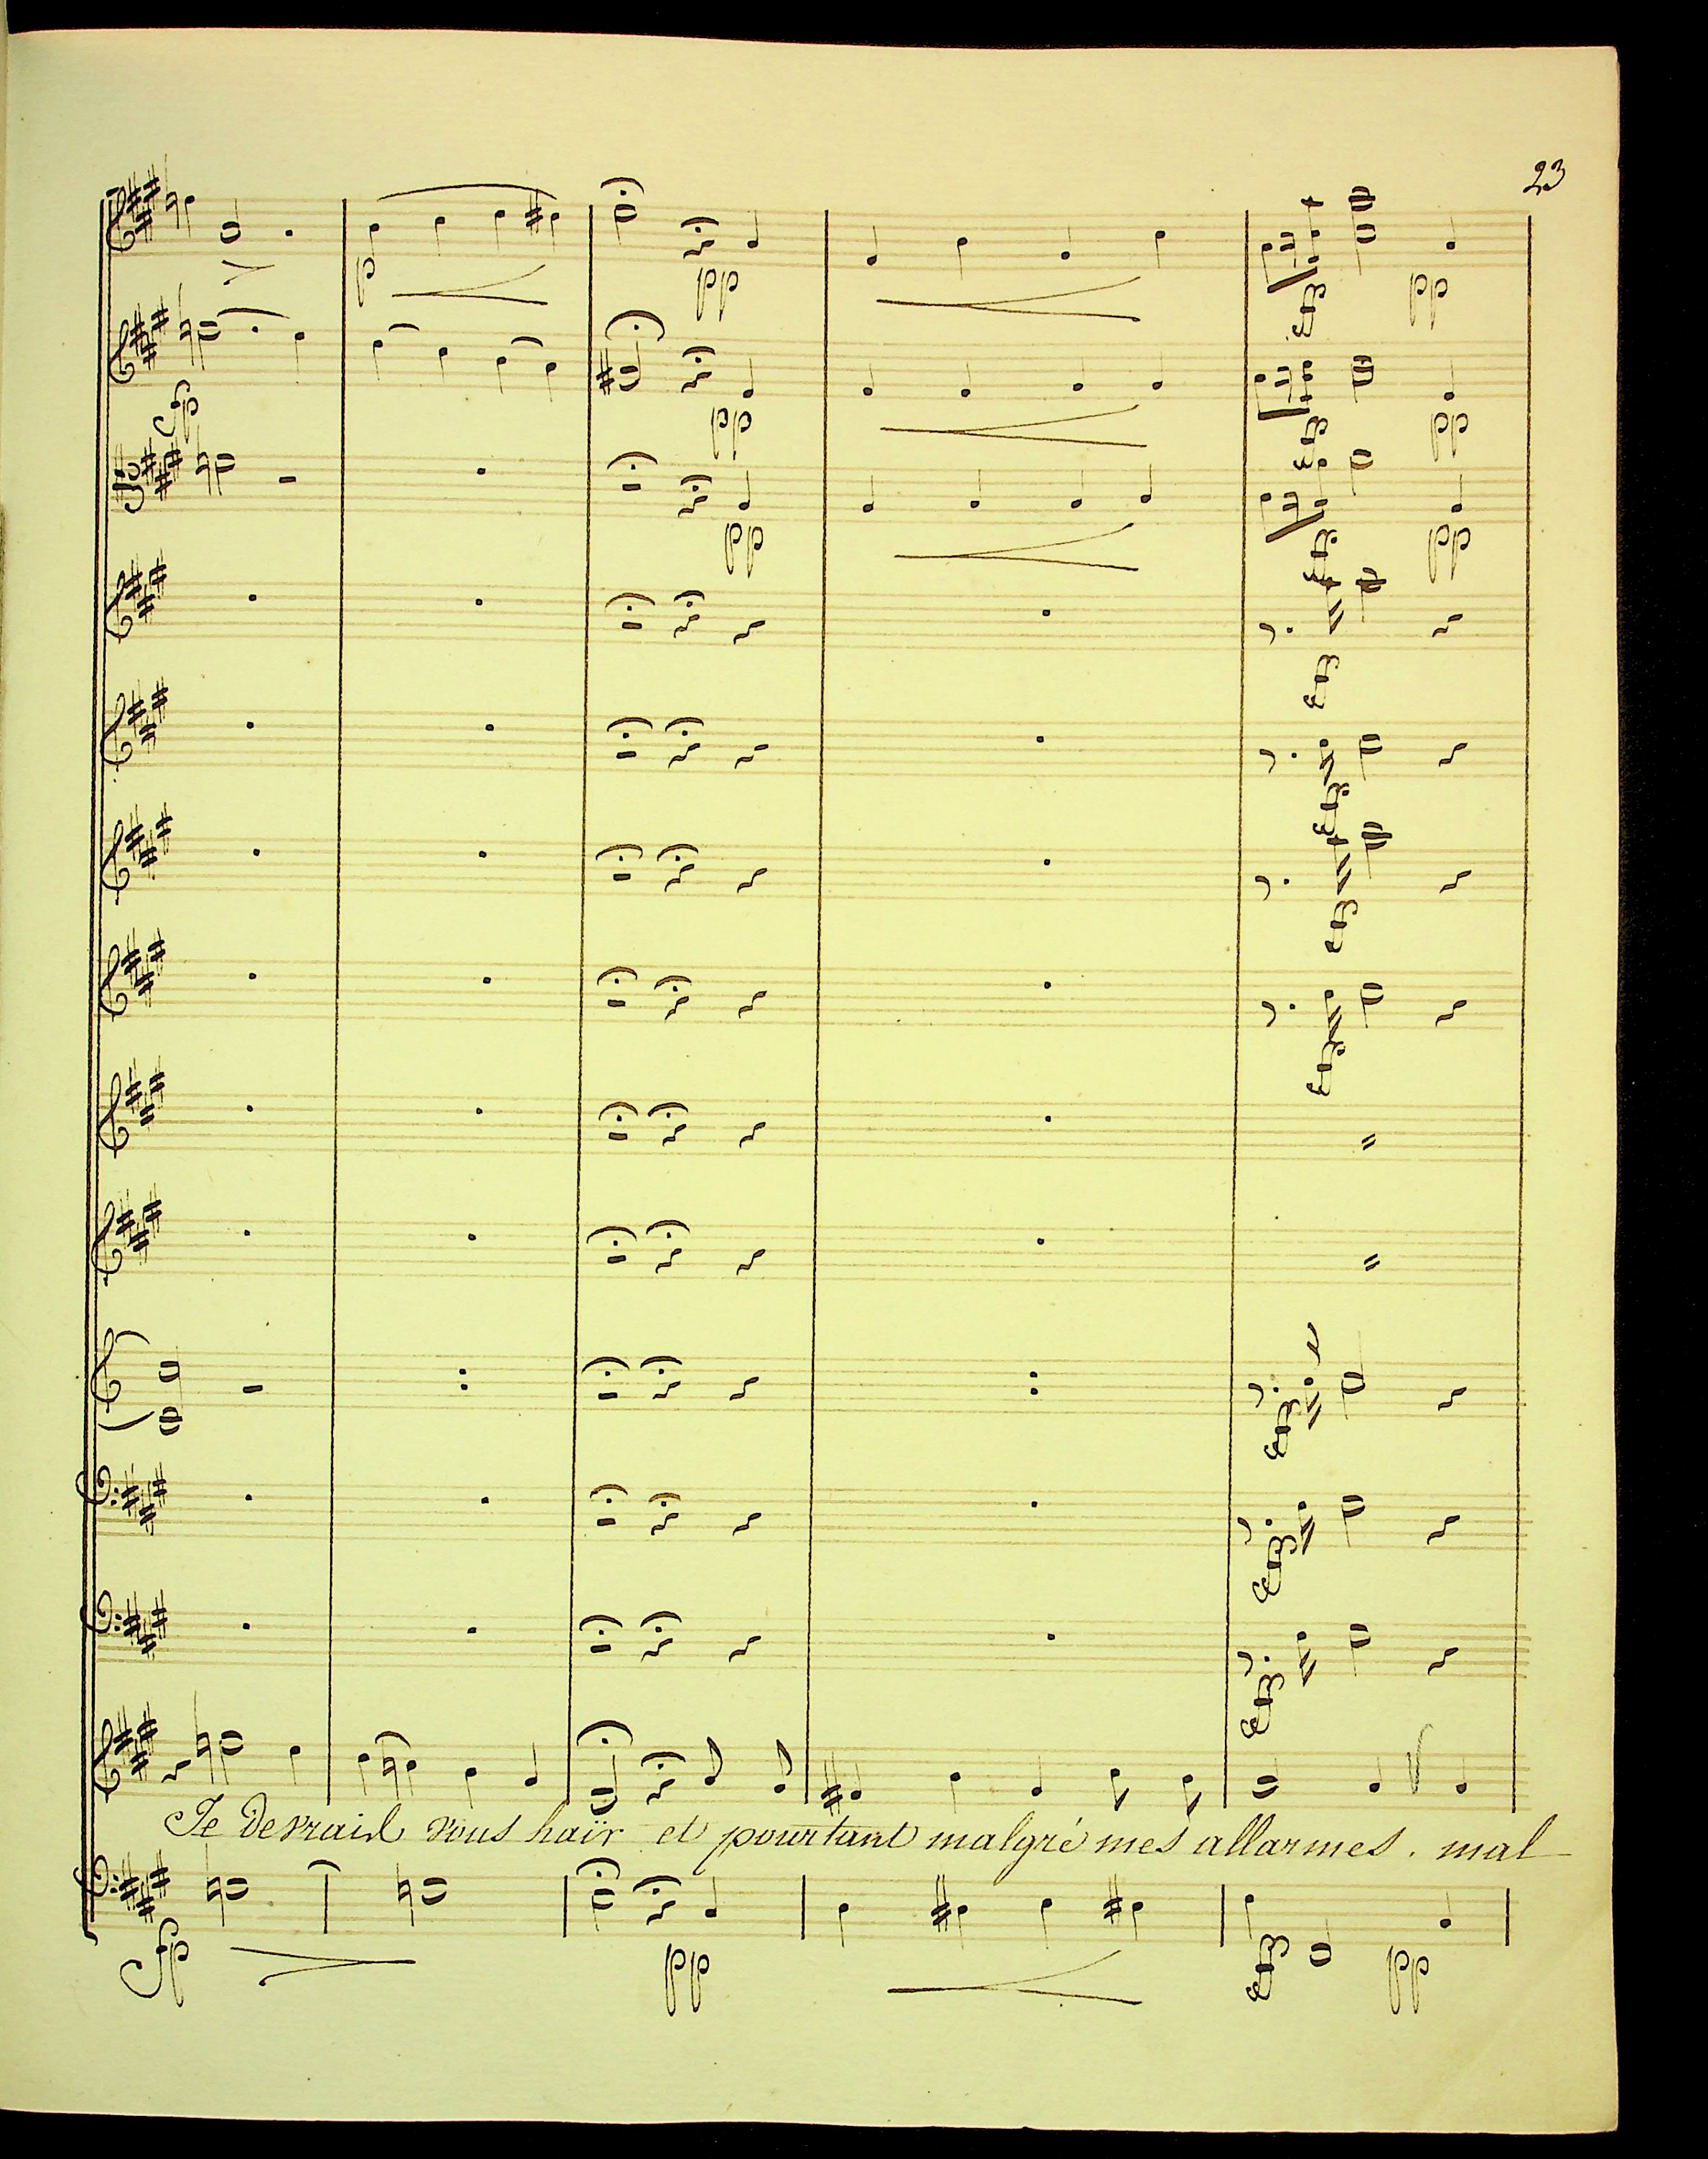 23
fp
p
pp
pp
pp
pp
pp
pp
Je devrais vous haïr et pourtant malgré mes allarmes. mal-
fp
pp
pp